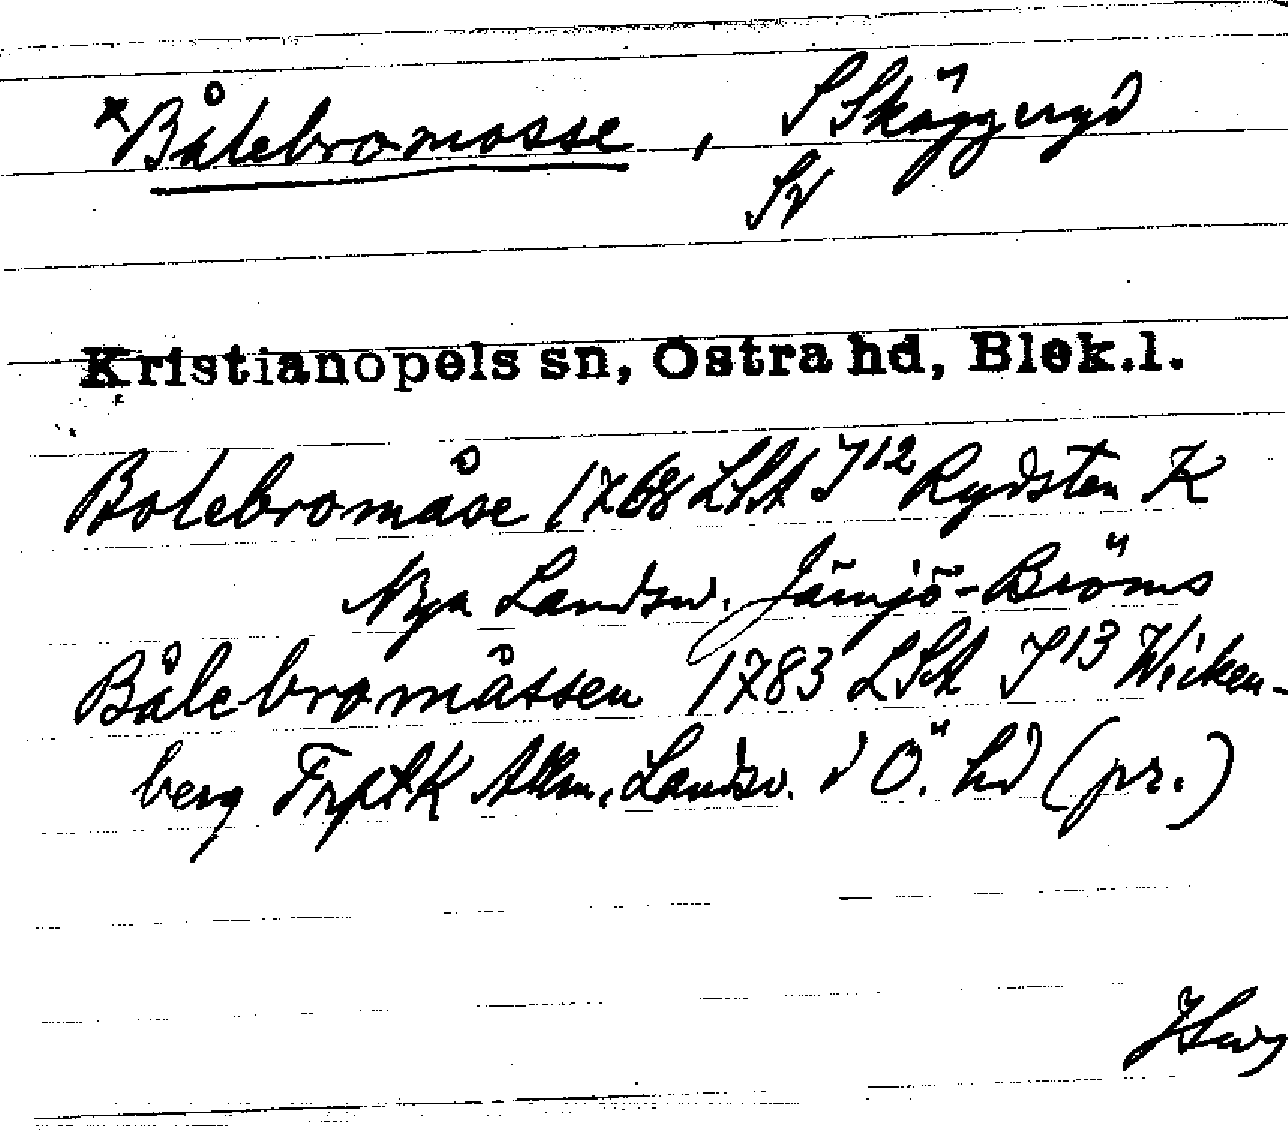 *Bålebromosse, S Skäggeryd
Sv
Kristianopels sn, Östra hd, Blek.l.
Bolebromåse 1768 LSA J12 Rydsten K
Nya Landsv. Jämjö-Bröms
Bålebromåssen 1783 LSA J13 Wicken-
berg Allm. Landsv. i Ö. hd (pr.)